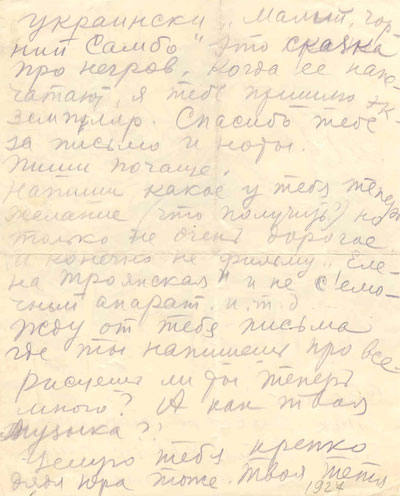 украински „Малый, чор-
ний Самбо" это сказка
про негров, когда ее напе-
чатают, я тебе пришлю эк-
земпляр. Спасибо тебе
за письмо и ноты.
Пиши почаще,
Напиши какое у тебя теперь
желание (что получить?) но
только не очень дорогое.
и конечно не фильму „Еле-
на Троянская" и не съемо-
чный апарат. и. т. д...
Жду от тебя письма
где ты напишешь про все-
Рисуешь ли ты теперь
много? А как твоя
музыка?
Целую тебя крепко
дядя Юра тоже. Твоя тетя
1927